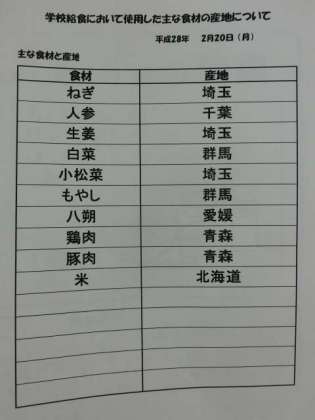 学校給食において使用した主な食材の産地について
平成28年 2月20日(月)
主な食材と産地
食材 産地
ねぎ 埼玉
人参 千葉
生姜 埼玉
白菜 群馬
小松菜 埼玉
もやし 群馬
八朔 愛媛
鶏肉 青森
豚肉 青森
米 北海道